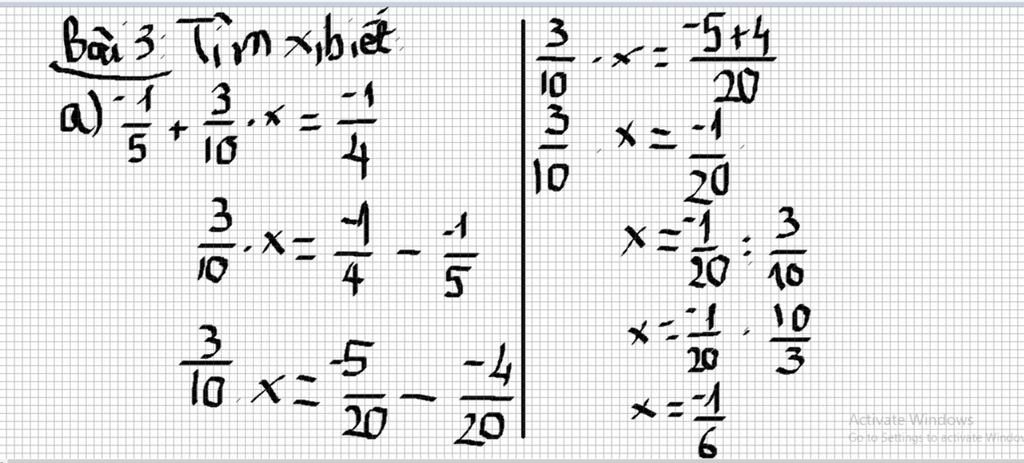 Bài 3: Tìm x, biết
a) -1/5 + 3/10 . x = -1/4
3/10 . x = -1/4 - -1/5
3/10 . x = -5/20 - -4/20
3/10 . x = -5+4/20
3/10 . x = -1/20
x = -1/20 : 3/10
x = -1/20 . 10/3
x = -1/6
Activate Windows
Go to Settings to activate Windows